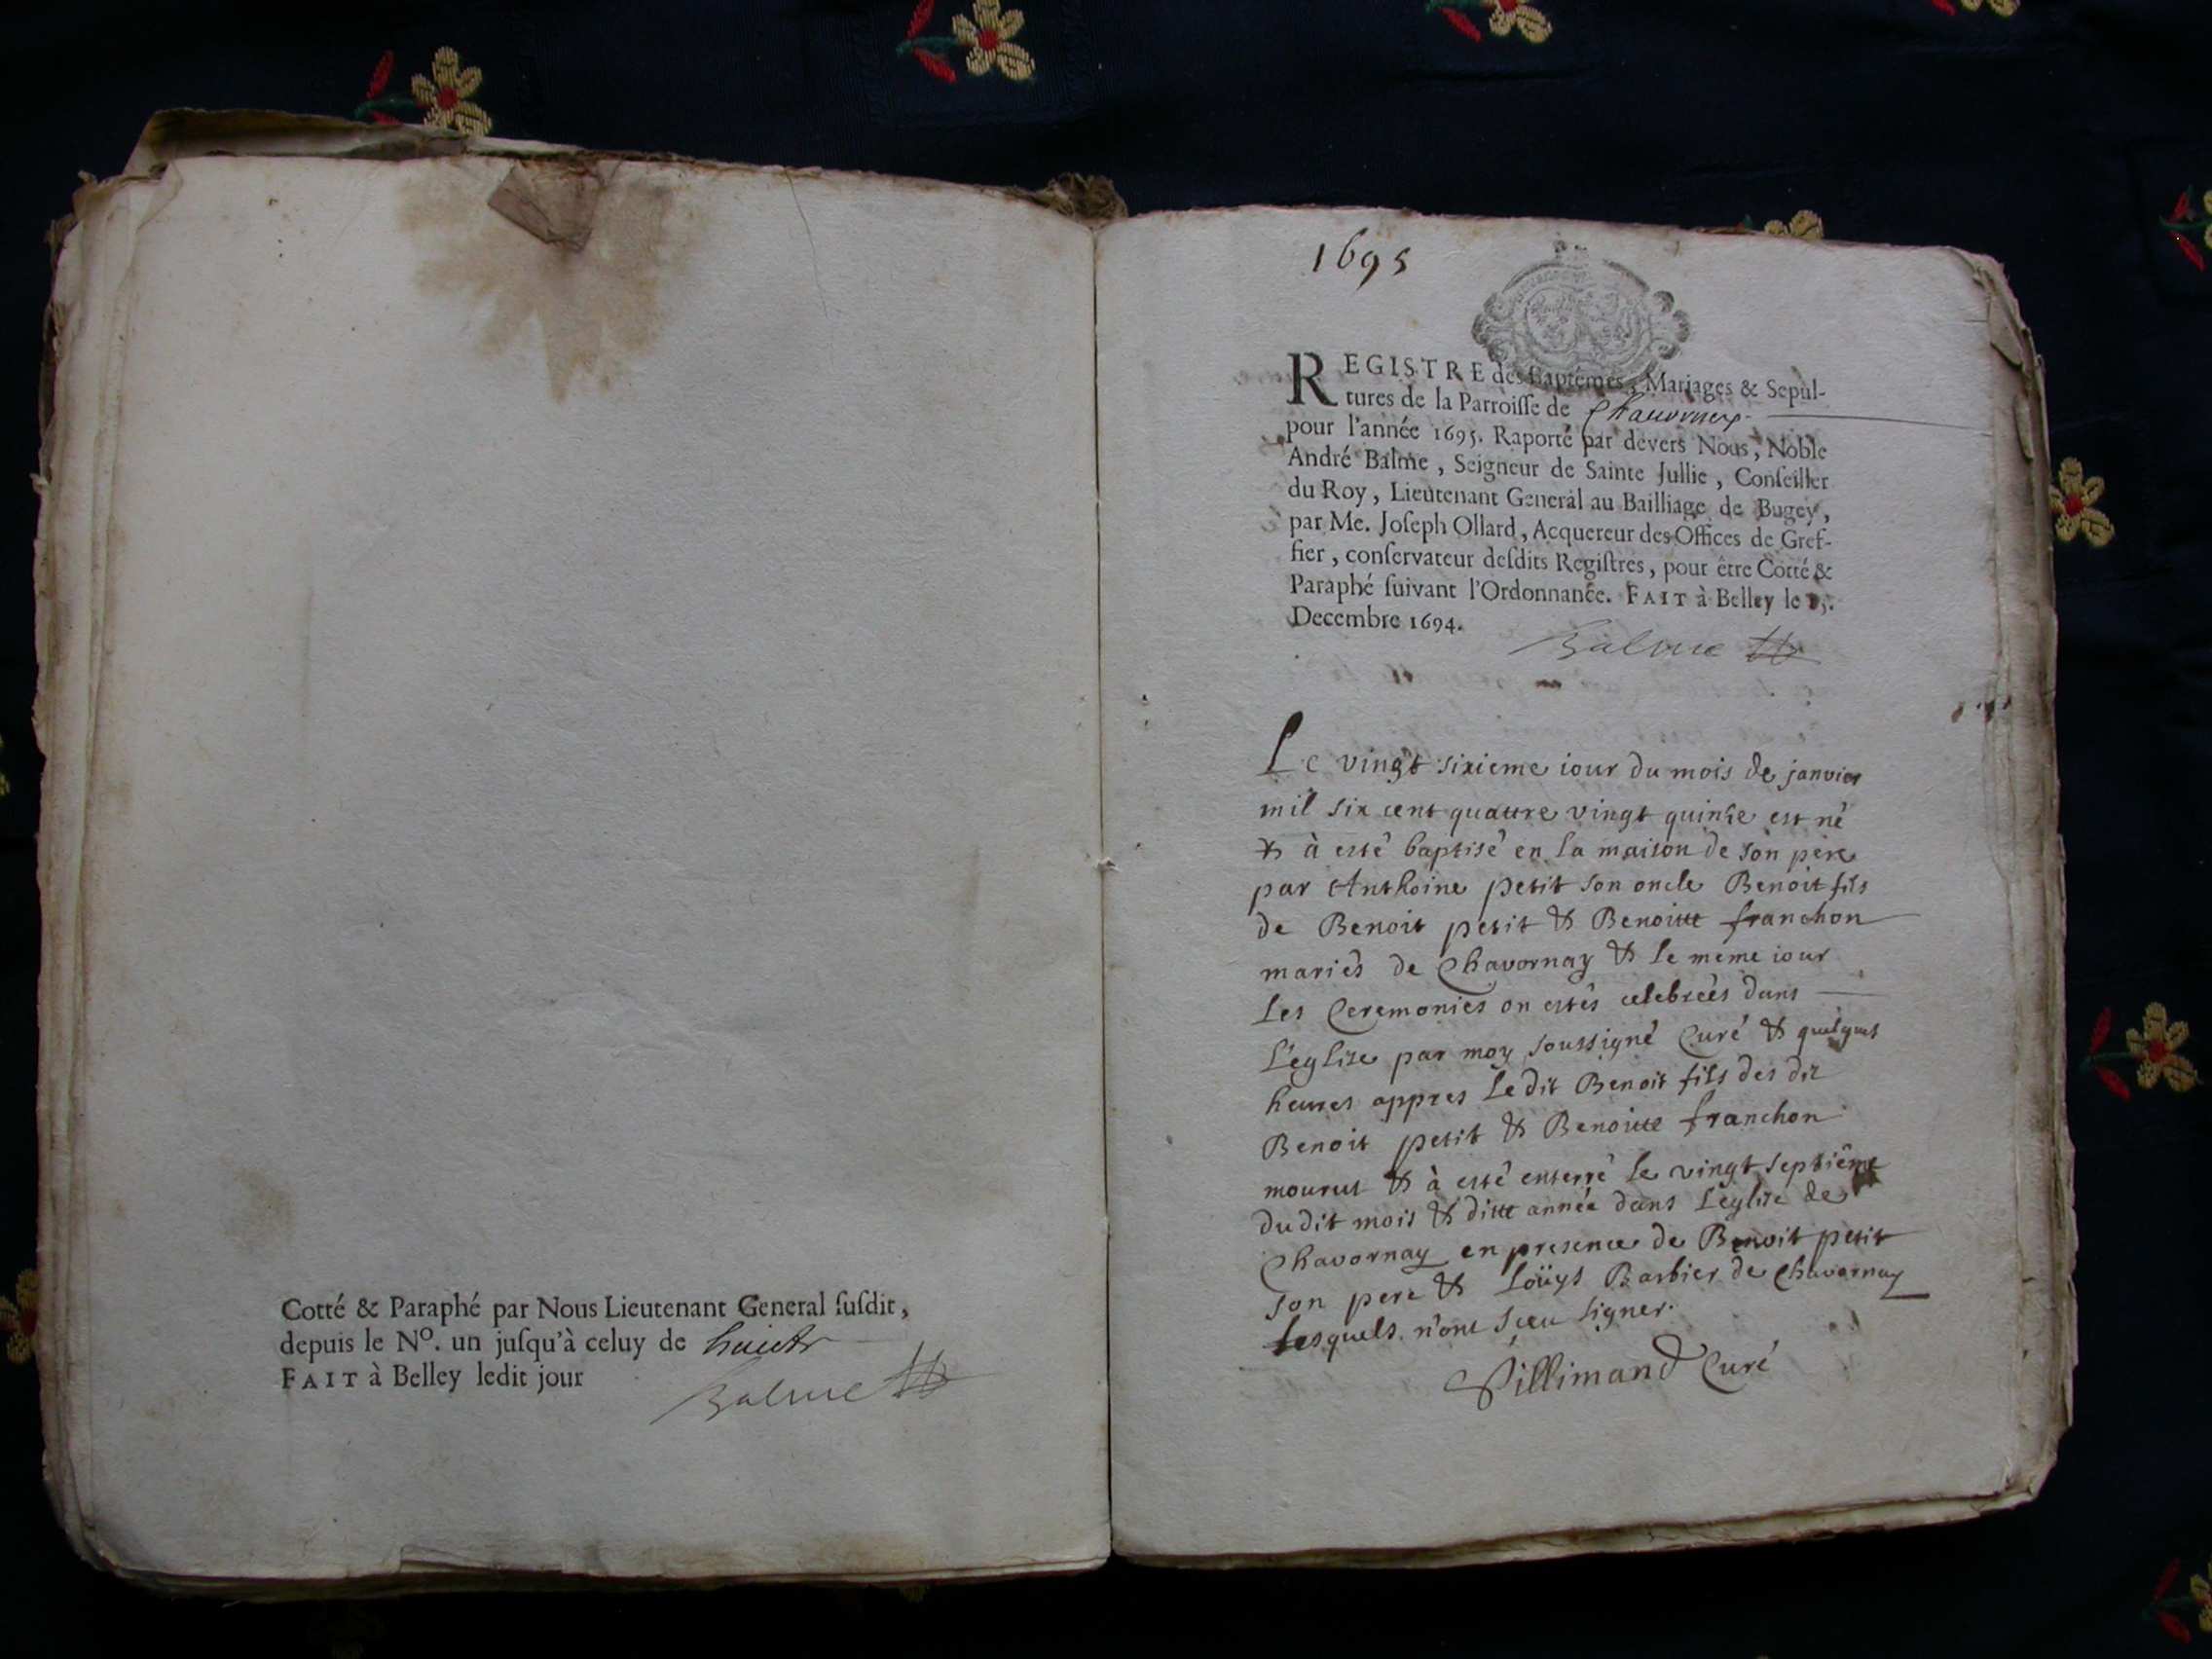 Cotté & Paraphé par Nous Lieutenant General ſuſdit,
depuis le Nº. un juſqu'à celuy de huict
FAIT à Belley ledit jour
Balme
1695
REGISTRE des Baptémes, Mariages & Sepul-
tures de la Parroiſſe de Chavorney
pour l'année 1695. Raporté par devers Nous, Noble
André Balme, Seigneur de Sainte Jullie, Conſeiller
du Roy, Lieutenant General au Bailliage de Bugey,
par Me. Joſeph Ollard, Acquereur des Offices de Gref-
fier, conſervateur deſdits Regiſtres, pour être Cotté &
Paraphé ſuivant l'Ordonnance. FAIT à Belley le
Decembre 1694.
Balme
Le vingt sixieme iour du mois de janvier
mil six cent quattre vingt quinze est né
& à esté baptisé en la maison de son pere
par Anthoine petit son oncle Benoit fils
de Benoit petit & Benoitte franchon
mariés de Chavornay & le méme iour
les Ceremonies on estés celebrées dans
l'eglise par moy soussigné Curé & quelques
heures appres le dit Benoit fils des dit
Benoit petit & Benoitte franchon
mourut & à esté enterré le vingt septiéme
du dit mois & ditte année dans l'eglise de
Chavornay en presence de Benoit petit
son pere & Loüys Barbier de Chavornay
lesquels n'ont sceu signer.
Sillimand Curé